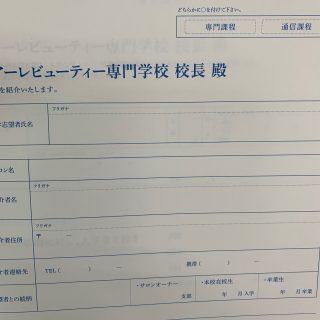 どちらかに○を付けて下さい。
専門課程 通信課程
アーレビューティー専門学校 校長 殿
を紹介いたします。
フリガナ
志望者氏名
ロン名
フリガナ
介者名
介者住所 〒 ー
介者連絡先 TEL ( ) ー 携帯 ( ) ー
・サロンオーナー ・本校在校生 ・卒業生
者との続柄 支部 年 月 入学 年 月 卒業